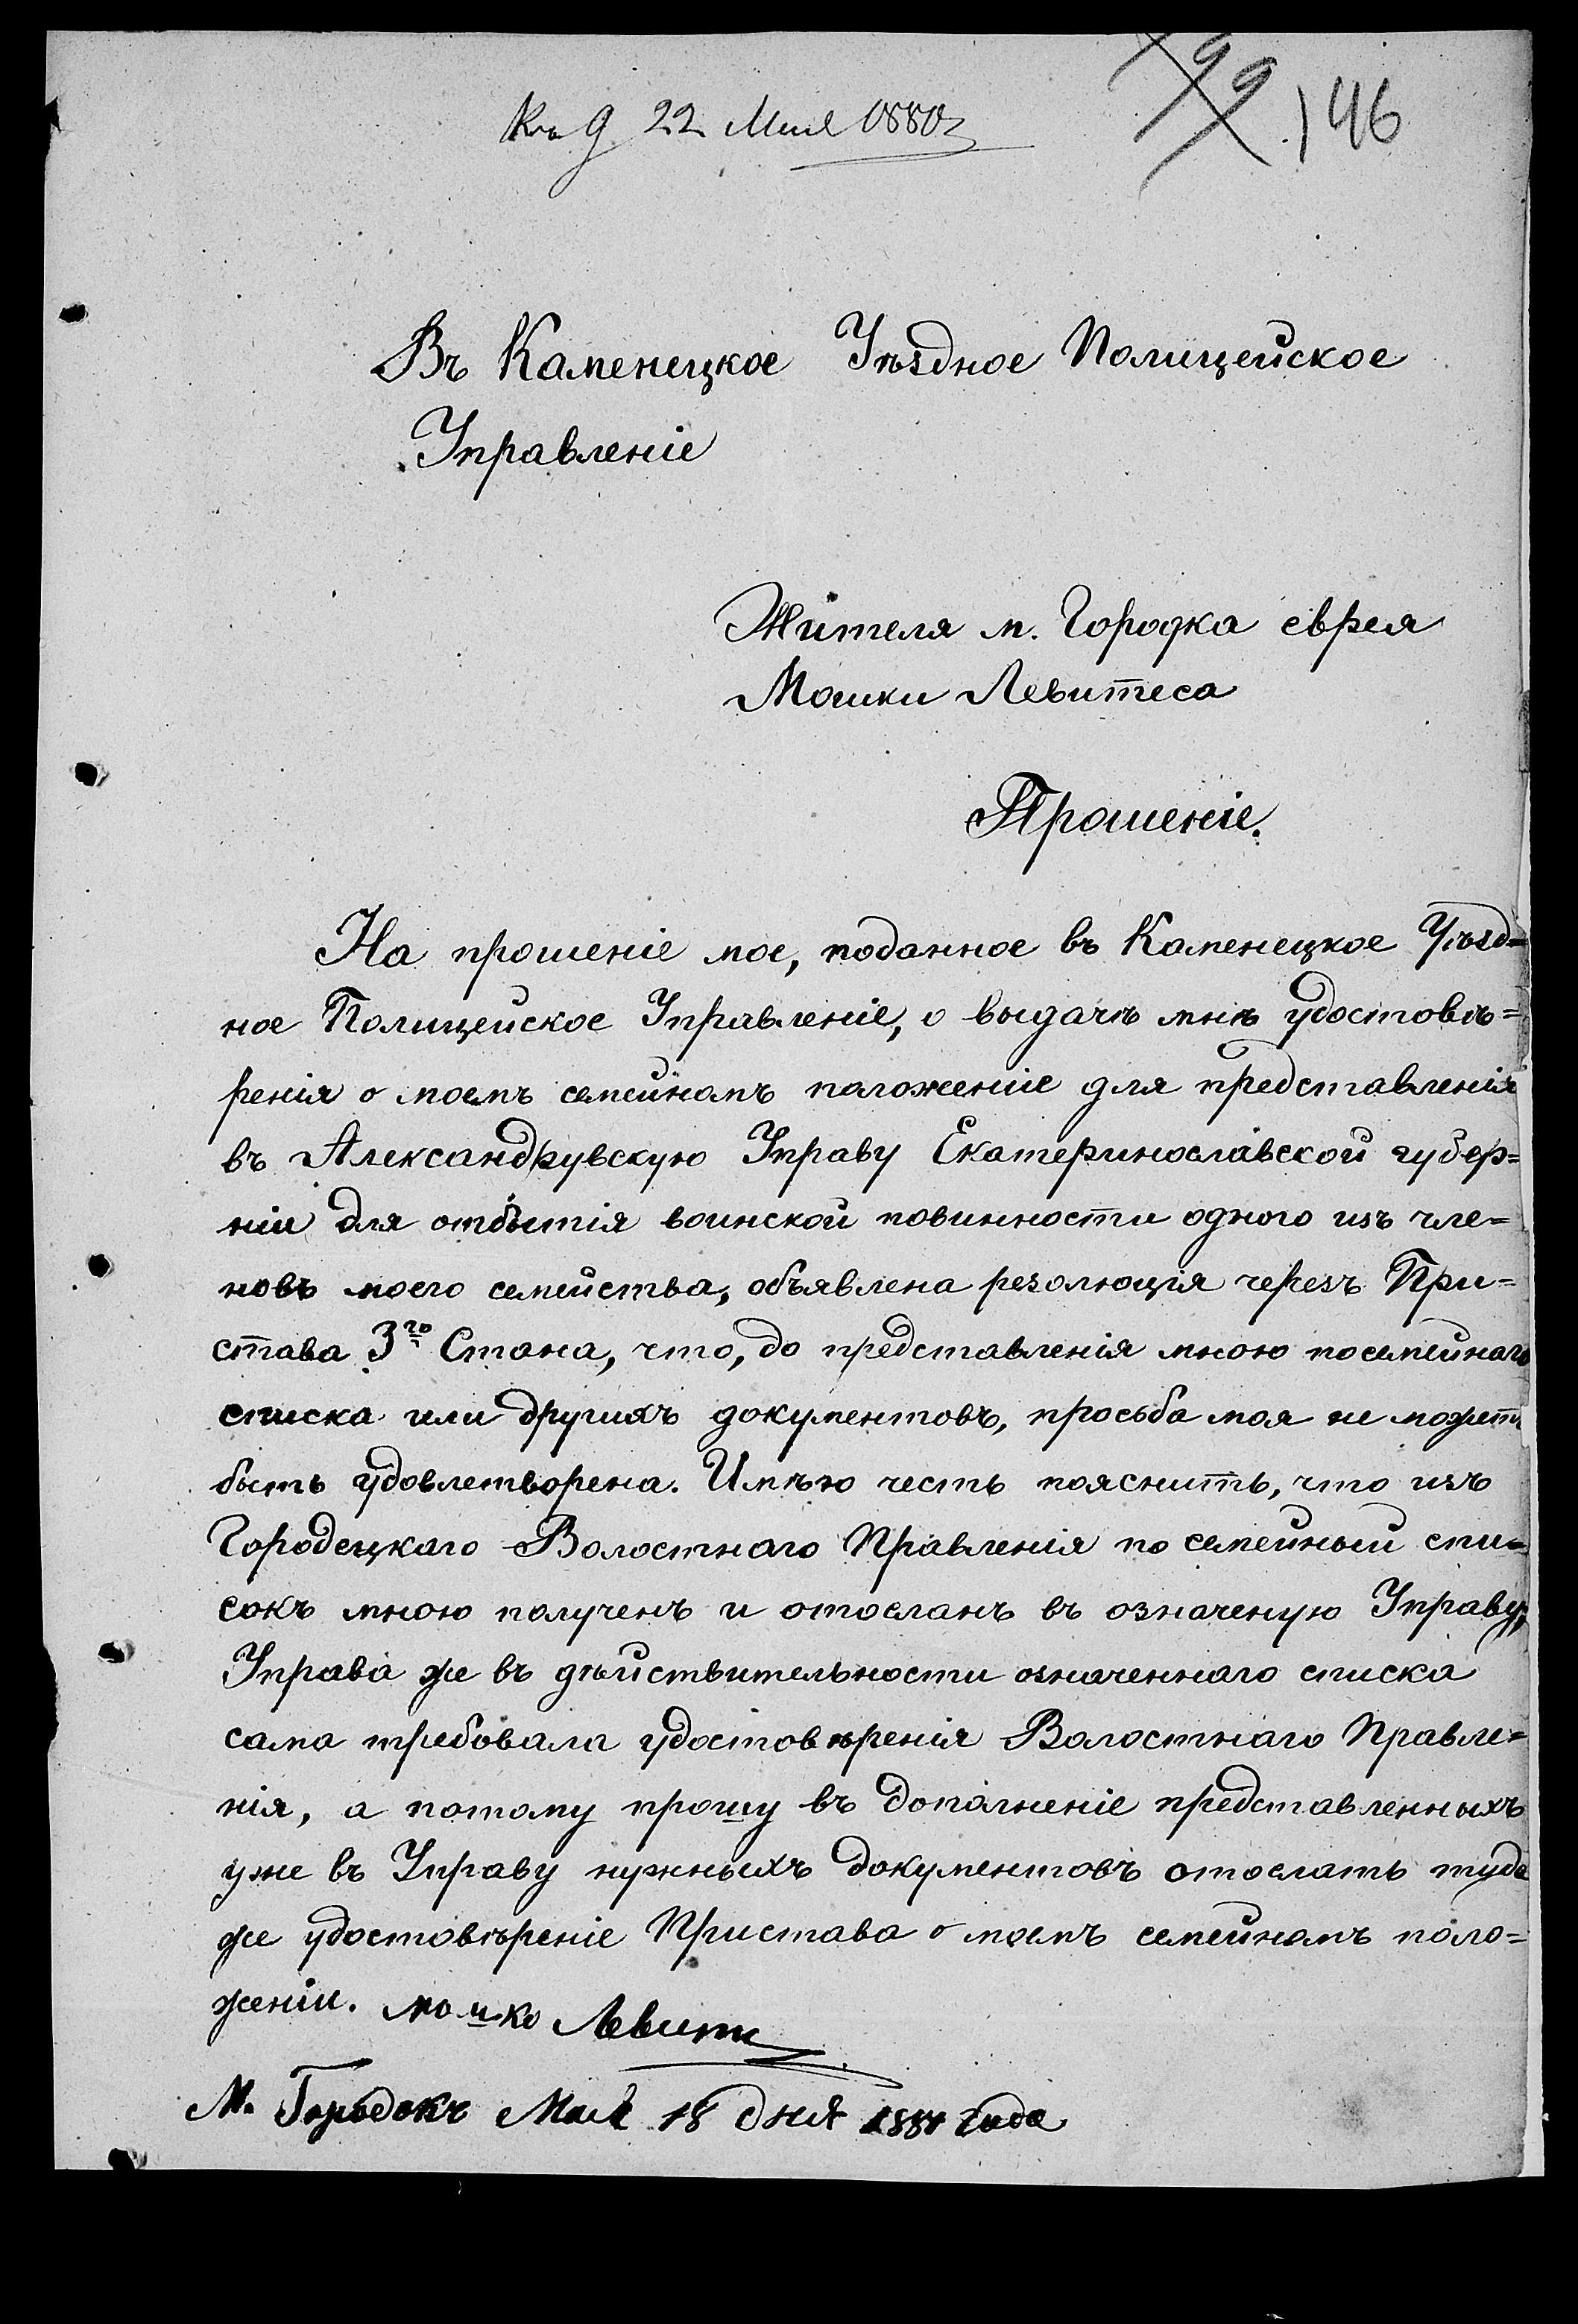 99 146
Къ д. 22 Мая 1880г
Въ Каменецкое Уѣздное Полицейское
Управленіе
Жителя м. Городка еврея
Мошки Левитеса
Прошеніе.
На прошеніе мое, поданное въ Каменецкое Уѣзд=
ное Полицейское Управленіе, о выдачѣ мнѣ удостовѣ=
ренія о моемъ семейномъ положеніе для представленія
въ Александрувскую Управу Екатеринославской губер=
ніи для отбытія воинской повинности одного изъ чле=
новъ моего семейства, объявлена резолюція черезъ При=
става 3го Стана, что, до представленія мною посемейнаго
списка или другихъ документовъ, просьба моя не можетъ
быть удовлетворена. Имѣю честь пояснить, что изъ
Городецкаго Волостнаго Правленія по семейный спи=
сокъ мною полученъ и отосланъ въ означеную Управу,
Управа же въ дѣйствительности означеннаго списка
сама требовала удостовѣренія Волостнаго Правле=
нія, а потому прошу въ дополненіе представленныхъ
уже въ Управу нужныхъ документовъ отослать туда
же удостовѣреніе Пристава о моемъ семейномъ поло=
женіи. мошко Левити
М. Городокъ Мая 18 дня года